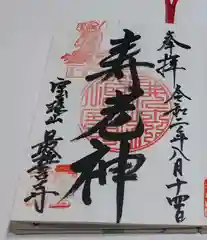 奉拝
令和二年八月十四日
寿老神
宝珠山
最誓寺